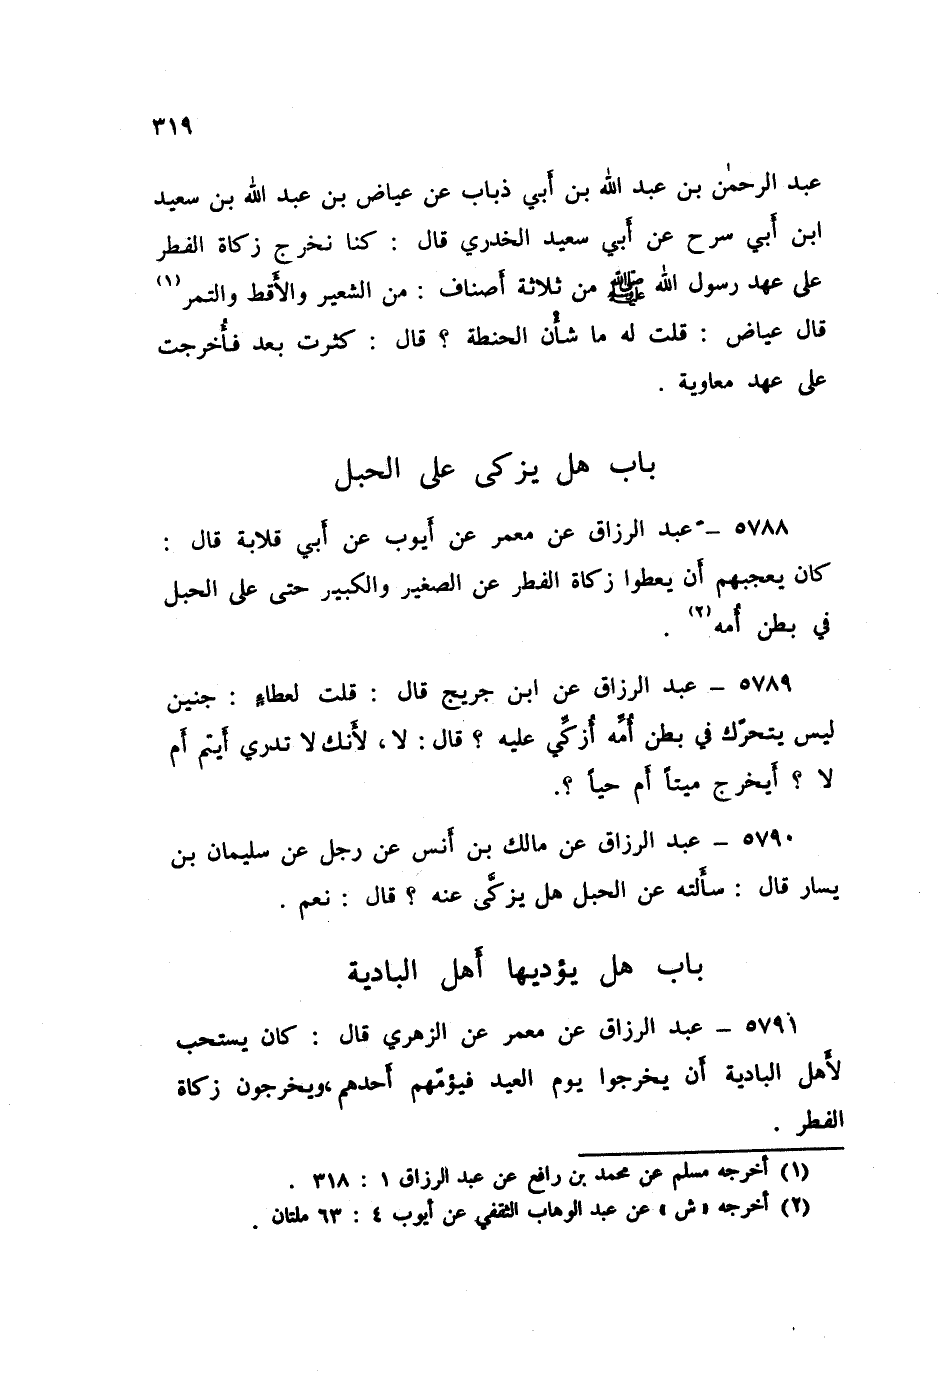 ٣١٩
عبد الرحمٰن بن عبد الله بن أَبي ذباب عن عياض بن عبد الله بن سعيد
ابن أَبي سرح عن أَبي سعيد الخدري قال : كنا نخرج زكاة الفطر
على عهد رسول الله ﷺ من ثلاثة أَصناف : من الشعير والأَقط والتمر(١)
قال عياض : قلت له ما شأْن الحنطة ؟ قال : كثرت بعد فأُخرجت
على عهد معاوية .
باب هل يزكى على الحبل
٥٧٨٨ – عبد الرزاق عن معمر عن أَيوب عن أَبي قلابة قال :
كان يعجبهم أَن يعطوا زكاة الفطر عن الصغير والكبير حتى على الحبل
في بطن أُمه(٢) .
٥٧٨٩ – عبد الرزاق عن ابن جريج قال : قلت لعطاءٍ : جنين
ليس يتحرّك في بطن أُمِّه أُزكِّي عليه ؟ قال : لا، لأَنك لا تدري أَيتم أَم
لا ؟ أَيخرج ميتاً أَم حياً ؟.
٥٧٩٠ – عبد الرزاق عن مالك بن أَنس عن رجل عن سليمان بن
يسار قال : سأَلته عن الحبل هل يزكَّى عنه ؟ قال : نعم .
باب هل يؤديها أَهل البادية
٥٧٩١ – عبد الرزاق عن معمر عن الزهري قال : كان يستحب
لأَهل البادية أَن يخرجوا يوم العيد فيؤمّهم أَحدهم،ويخرجون زكاة
الفطر .
(١) أخرجه مسلم عن محمد بن رافع عن عبد الرزاق ١ : ٣١٨ .
(٢) أخرجه «ش» عن عبد الوهاب الثقفي عن أيوب ٤ : ٦٣ ملتان .